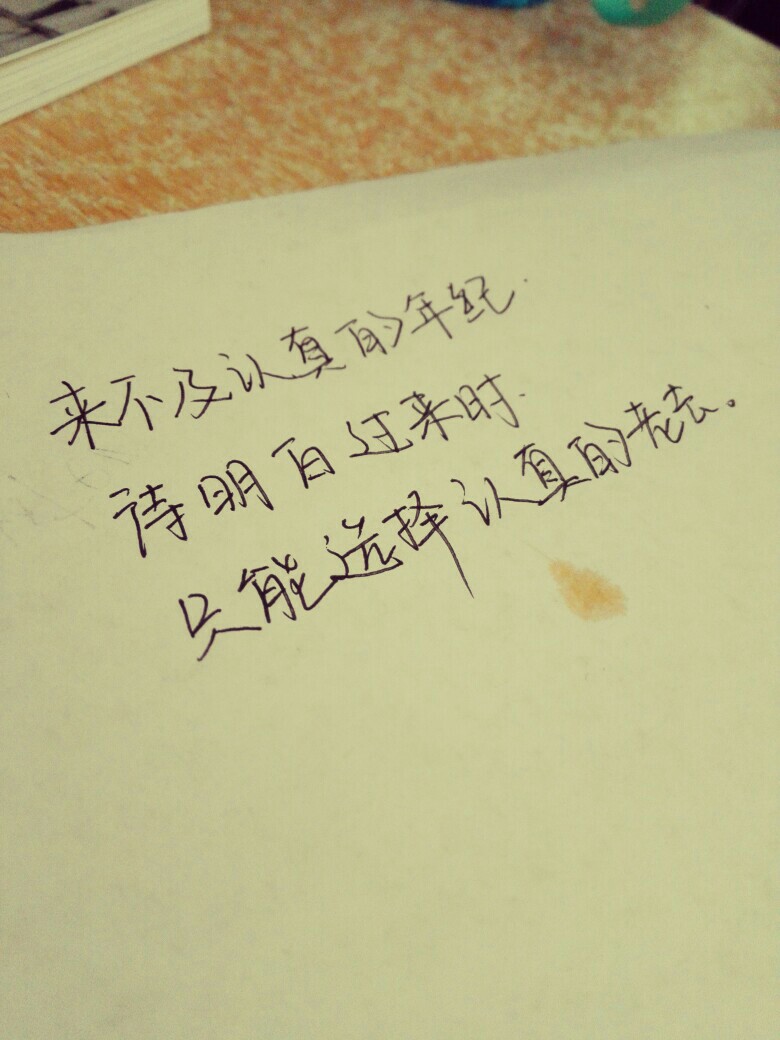 来不及认真的年纪
待明白过来时.
只能选择认真的老去。